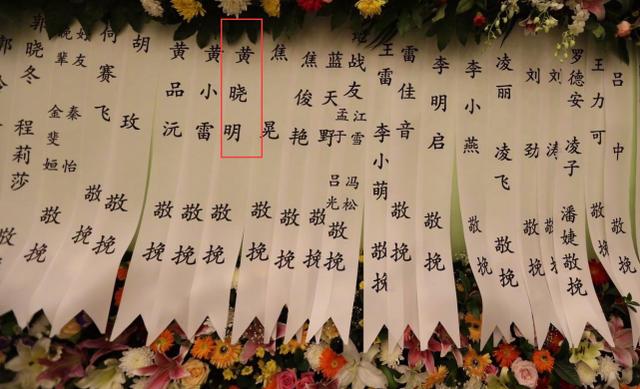 郭晓冬 程莉莎 敬挽
好友
金斐姮 秦怡 敬挽
何赛飞 敬挽
胡玫 敬挽
黄品沅 敬挽
黄小雷 敬挽
黄晓明 敬挽
焦晃 敬挽
焦俊艳 敬挽
蓝天野 敬挽
战友
孟于 江雪
吕光 冯松
敬挽
王雷 李小萌 敬挽
雷佳音 敬挽
李明启 敬挽
李小燕 敬挽
凌丽 凌飞 敬挽
刘劲 敬挽
刘涛 敬挽
罗德安 凌子 潘婕 敬挽
王力可 敬挽
吕中 敬挽